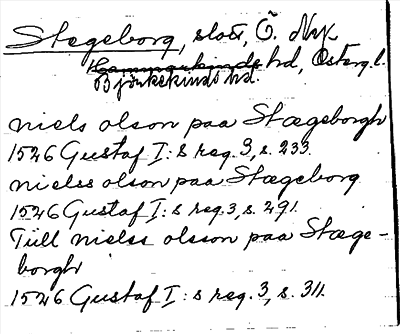 Stegeborg, slott, Ö. Nyk
Hammarkinds hd, Österg. l.
Björkekinds hd.
niels olson paa Stægeborgh
1526 Gustaf I: s reg. 3, s. 233.
nielss olson paa Stægeborg
1526 Gustaf I: s reg. 3, s. 291.
Till nielss olsson paa Stæge-
borgh
1526 Gustaf I: s reg. 3, s. 311.